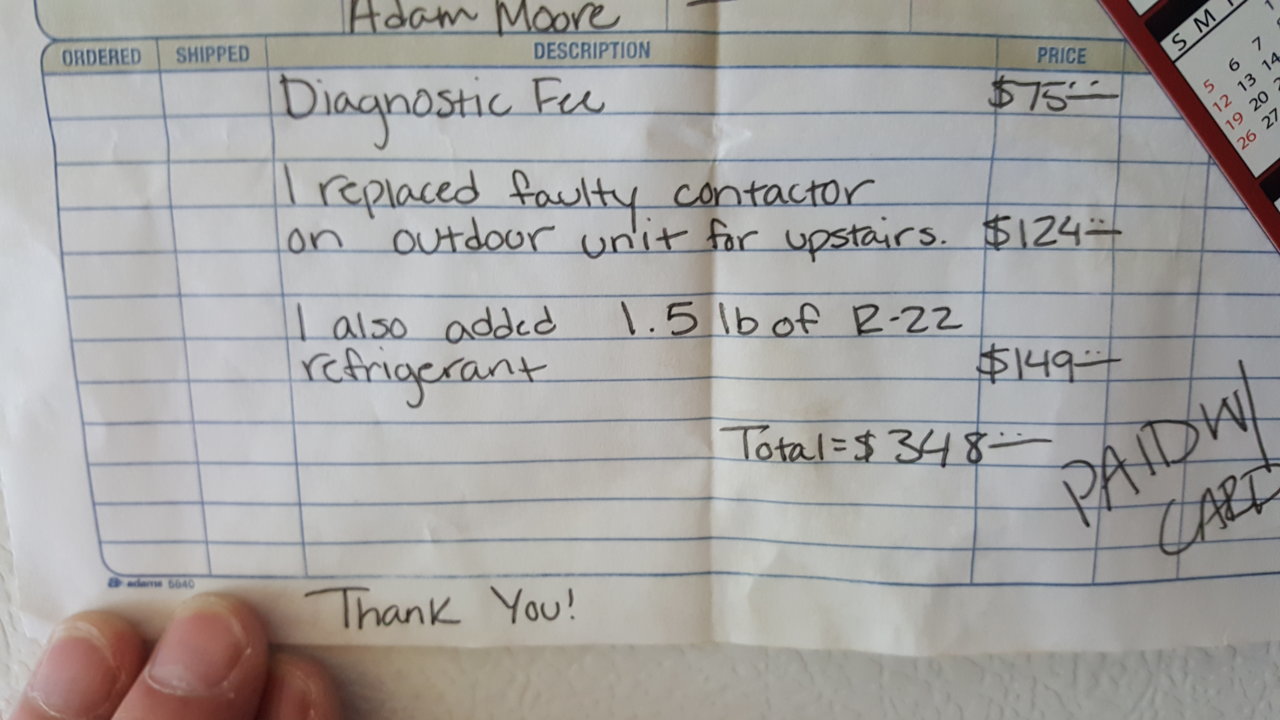 Adam Moore
ORDERED SHIPPED DESCRIPTION PRICE
Diagnostic Fee $75
I replaced faulty contactor
on outdoor unit for upstairs. $124
I also added 1.5 lb of R-22
refrigerant $149
Total = $348
PAID W/
CARD
adams 5840
Thank You!
S M
5 6 7
12 13 14
19 20
26 27